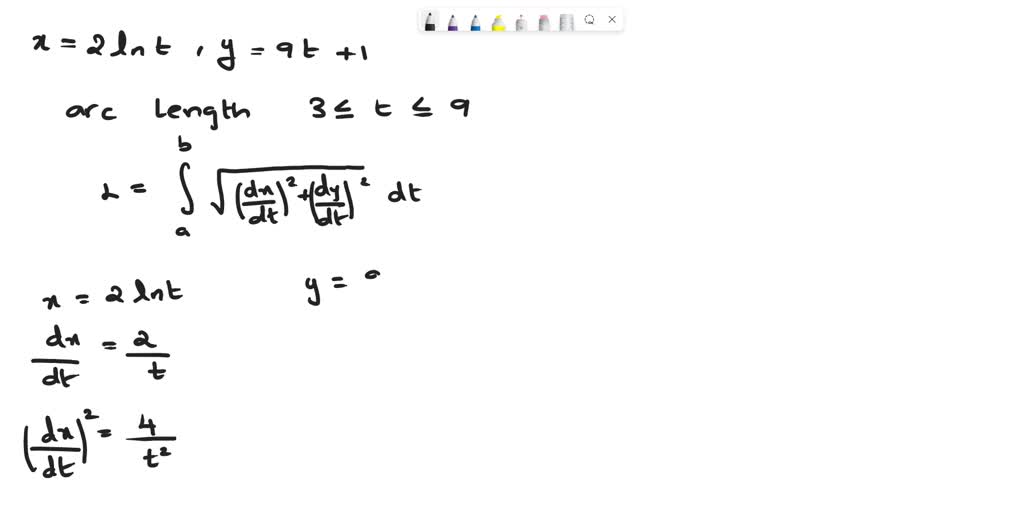 x = 2 ln t , y = 9t + 1
arc length 3 ≤ t ≤ 9
L = ∫_a^b √((dx/dt)² + (dy/dt)²) dt
x = 2 ln t
y =
dx/dt = 2/t
(dx/dt)² = 4/t²